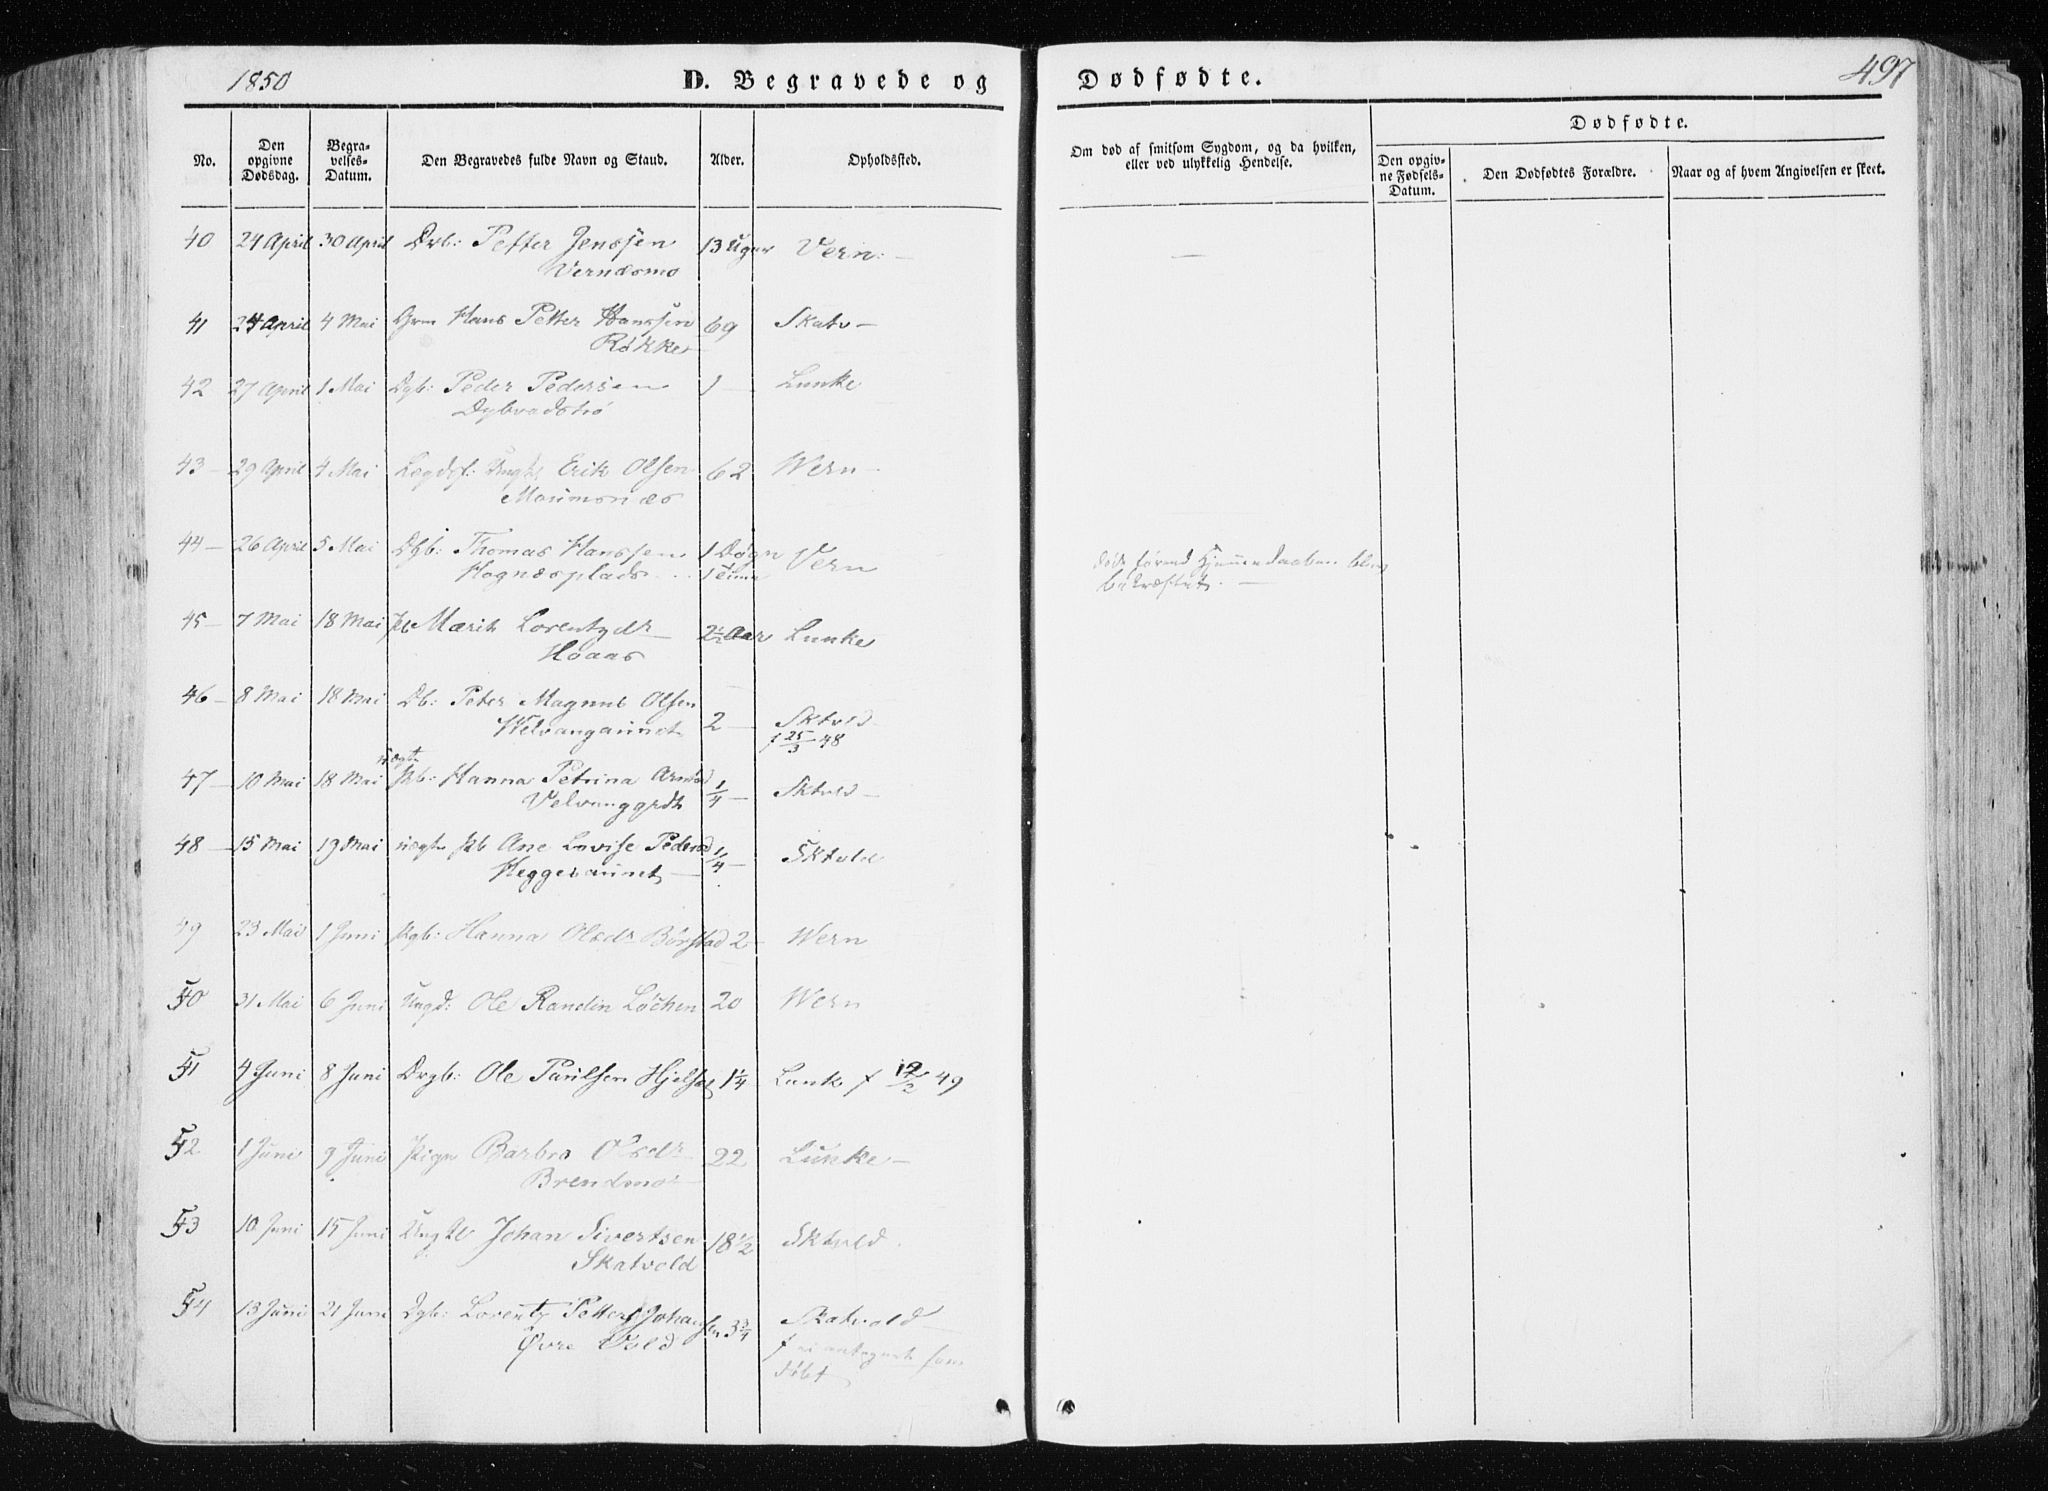 1850
D. Begravede og Dødfødte.
497
No.
Den opgivne Dødsdag.
Begravelses-Datum.
Den Begravedes fulde Navn og Stand.
Alder.
Opholdssted.
Om død af smitsom Sygdom, og da hvilken, eller ved ulykkelig Hendelse.
Dødfødte.
Den opgivne Fødsels-Datum.
Den Dødfødtes Forældre.
Naar og af hvem Angivelsen er skeet.
40 24 April 30 April Drb: Petter Jenssen 13 Uger Vern: —
Vernæsmo
41 24 April 4 Mai Gm Hans Petter Hanssen 69 Skatv —
Røkke
42 27 April 1 Mai Dgb: Peder Pedersen 1 — Lunke
Dybvadstrø
43 — 29 April 4 Mai Lægdsl: Ungk. Erik Olsen 62 Wern —
Moumsnæs
44 — 26 April 5 Mai Dgb: Thomas Hanssen 1 Døgn Vern
Hognæsplads 1 Time
døde førend Hjemmedaaben blev
bekræftet. —
45 — 7 Mai 18 Mai Pb Marit Lorentzdr 2½ Aar Lunke
Hoaas
46 — 8 Mai 18 Mai Db: Peter Magnus Olsen 2 — Sktvld
Welvangaunet f 25/3 48
47 — 10 Mai 18 Mai uægte Pb: Hanna Petrina Arntsd ¼ — Sktvld —
Velvanggrdt
48 — 15 Mai 19 Mai uægte Pb Ane Lovise Pedersd ¼ — Sktvld
Heggesaunet —
49 23 Mai 1 Juni Pgb: Hanna Olsdr Børstad 2 — Wern
50 31 Mai 6 Juni Ungd: Ole Randin Løchen 20 Wern
51 4 Juni 8 Juni Drgb: Ole Paulsen Hjelset 1¼ Lunk f 12/2 49
52 1 Juni 9 Juni Pige Barbro Olsdr 22 Lunke —
Brendmo
53 10 Juni 15 Juni Ungkl Johan Sivertsen 18½ Sktvld.
Skatvold
54 13 Juni 21 Juni Dgb: Lorentz Petter Johansen 3¾ Skatvold
Øvre Vold f ei antegnet som
døbt